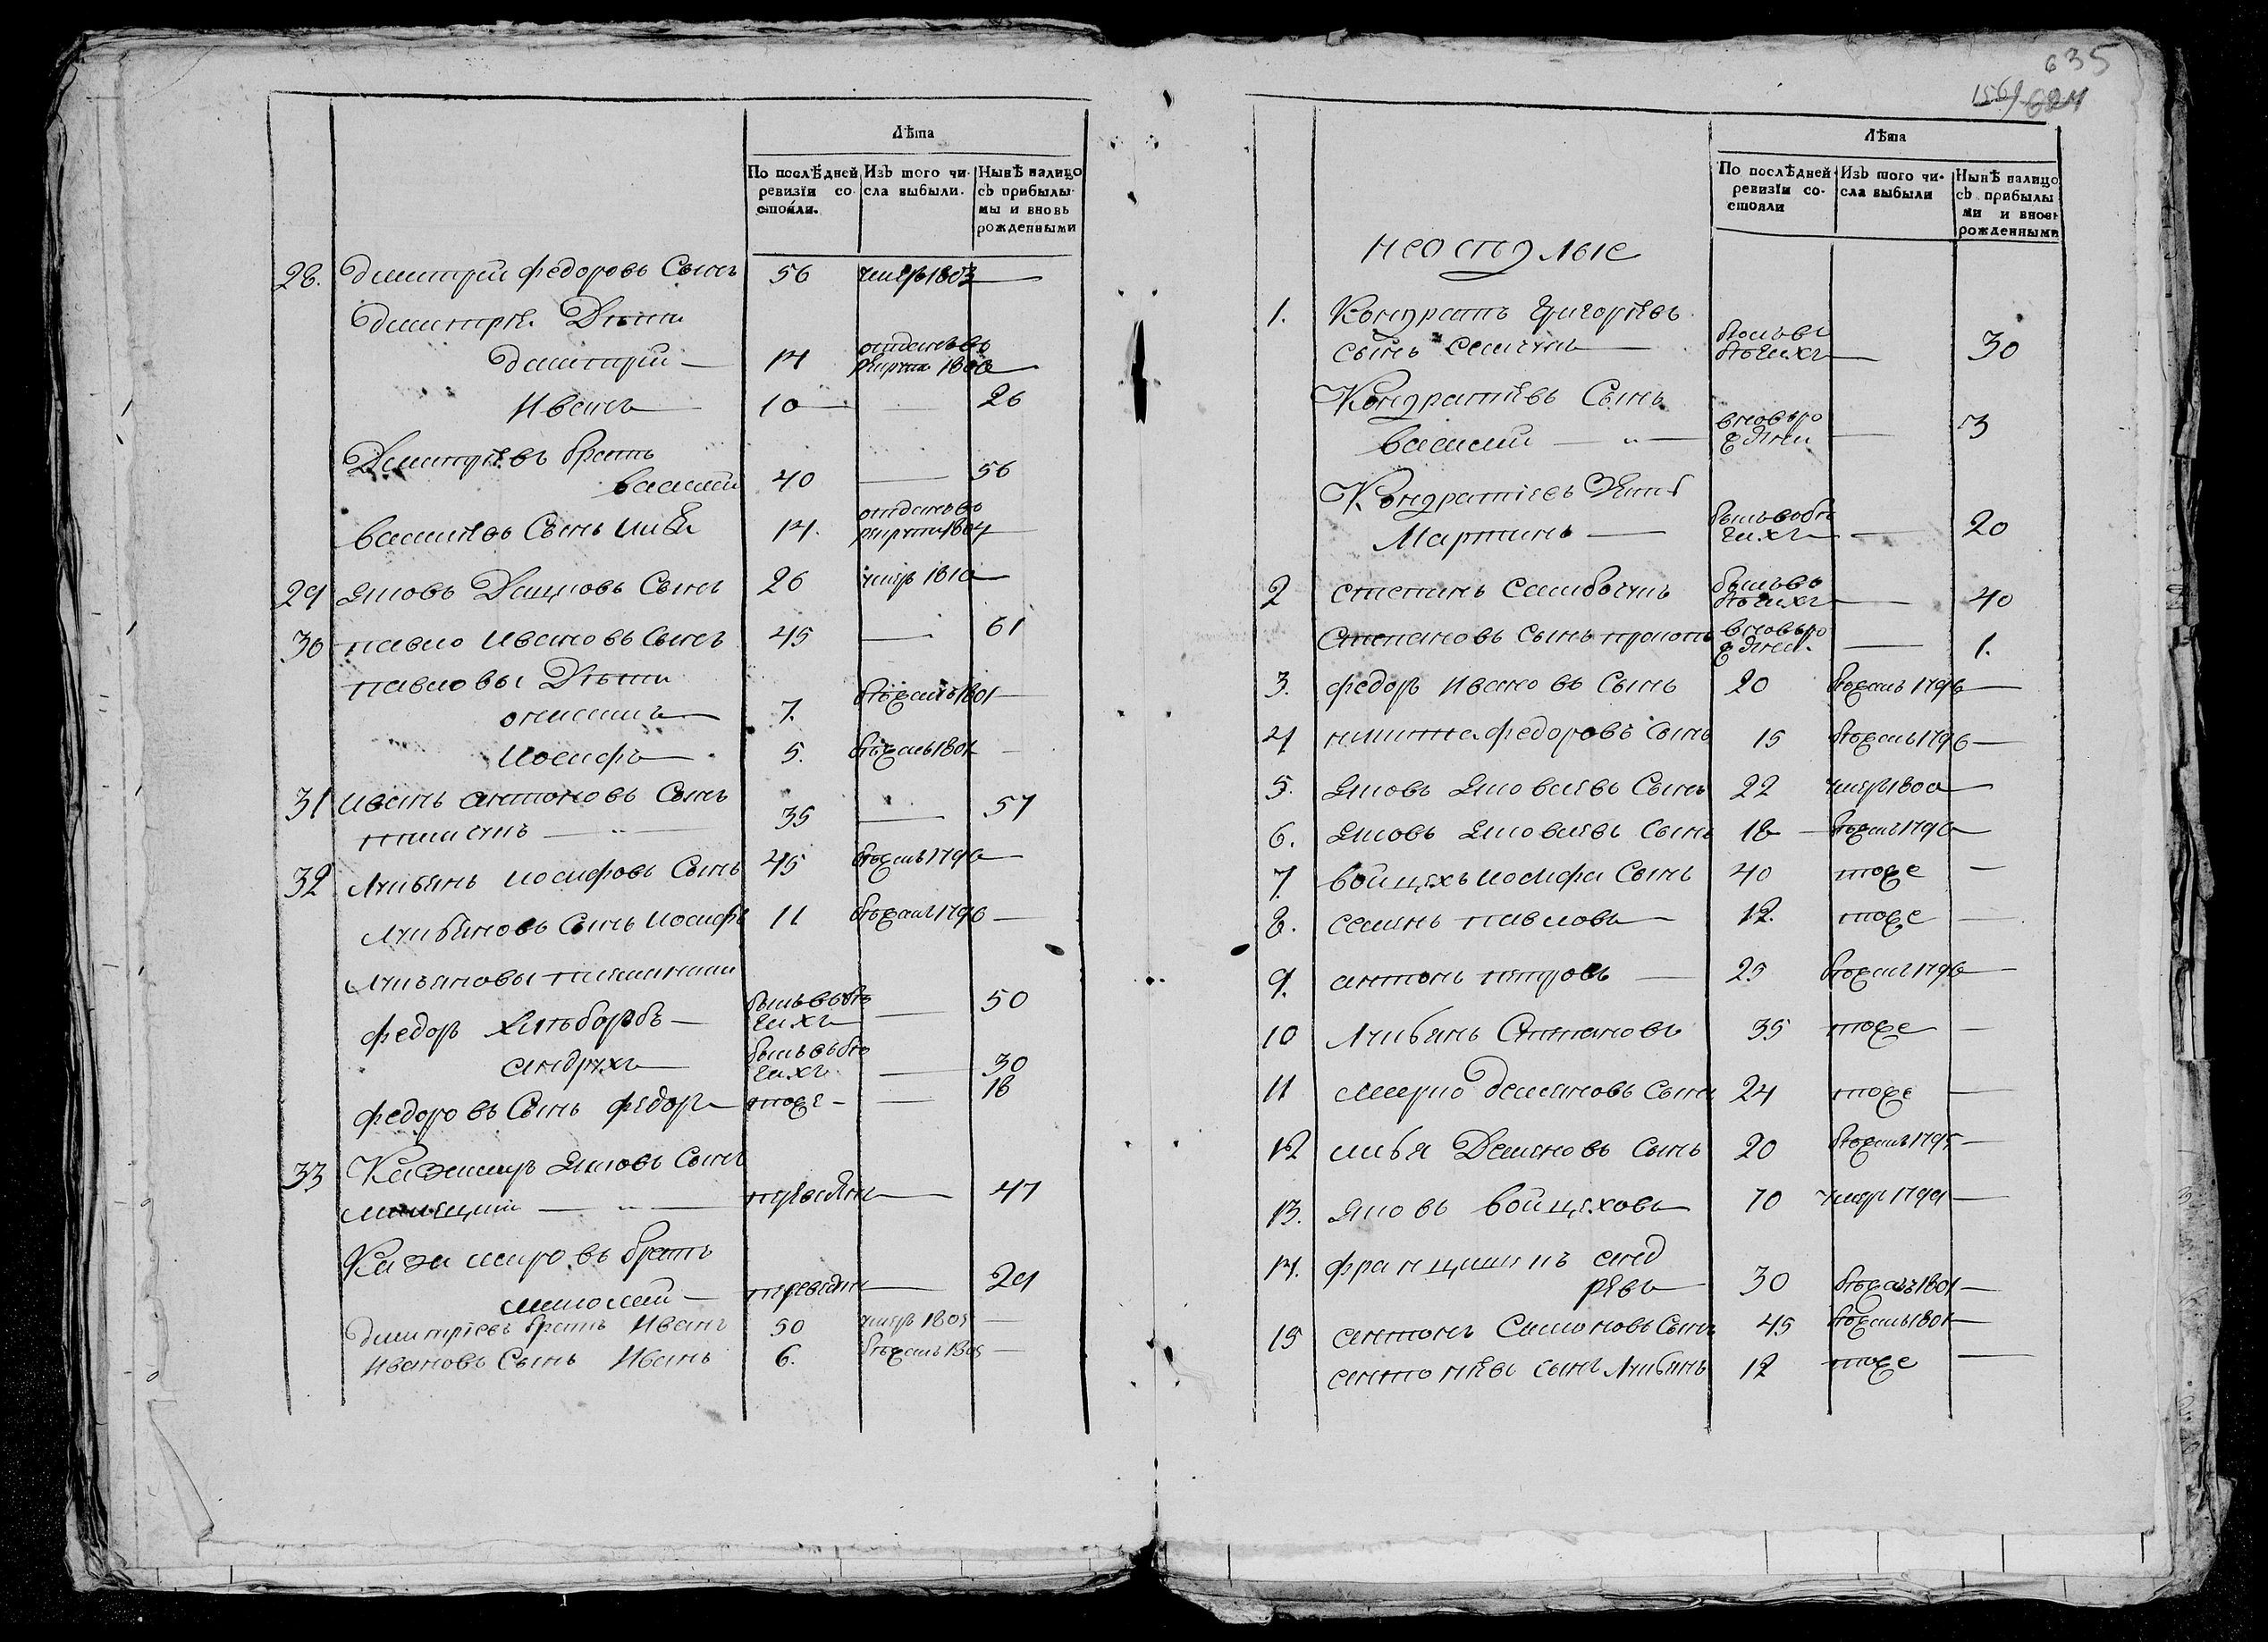 635
1569 624
Лѣта
По послѣдней ревизіи состояли.
Изъ того числа выбыли.
Нынѣ налицо съ прибылыми и вновь рожденными
28. Дмитрій Федоровъ Сынъ 56 умеръ 1803 —
Дмитрія Дѣти
Дмитрій — 14 отданъ въ рекруты —
Иванъ — 10 — 26
Дмитріевъ братъ
Василій 40 — 56
Васильевъ Сынъ Илья 14. отданъ въ рекруты 1804 —
29 Яковъ Сынъ 26 умеръ 1810 —
30 Павло Ивановъ Сынъ 45 — 61
Павловы Дѣти
Онисимъ — 7. бѣжалъ 1801 —
Иосифъ — 5. бѣжалъ 1801 —
31 Иванъ Антоновъ Сынъ
35 — 51
32 Лукьянъ Иосифовъ Сынъ 45 бѣжалъ 1796 —
Лукьяновъ Сынъ Иосифъ 11 бѣжалъ 1796 —
Лукьяновы племянники
Федоръ — былъ въ бѣгахъ — 50
Андрухъ — былъ въ бѣгахъ — 30
Федоровъ Сынъ Федоръ — тоже — — 18
33 Казимиръ Яковъ Сынъ
— „ — 47
Казимировъ братъ
Николай — — 29
Дмитріевъ братъ Иванъ 50 умеръ 1805 —
Ивановъ Сынъ Иванъ 6. бѣжалъ 1805 —
Лѣта
По послѣдней ревизіи состояли
Изъ того числа выбыли
Нынѣ налицо съ прибылыми и вновь рожденными
неоспулые
1. Кондратъ Григоріевъ
сынъ — былъ въ бѣгахъ — 30
Кондратіевъ Сынъ
Василій — „ — вновь рожденъ — 3
Кондратіевъ Зять
Мартинъ — былъ въ бѣгахъ — 20
2 Степанъ былъ въ бѣгахъ — 40
Степановъ сынъ вновь рожденъ — 1.
3. Федоръ Ивановъ Сынъ 20 бѣжалъ 1796 —
4 Никита Федоровъ Сынъ 15 бѣжалъ 1796 —
5. Яковъ Яковлевъ Сынъ 22 умеръ 1800 —
6. Яковъ Яковлевъ Сынъ 18 — бѣжалъ 1796 —
7. Войцехъ Иосифа Сынъ 40 тоже —
8. Семенъ Павловъ — 12. тоже —
9. Антонъ Петровъ — 25 бѣжалъ 1796 —
10 Лукьянъ Степановъ 35 тоже —
11 Демяновъ Сынъ 24 тоже —
12 Илья Демяновъ Сынъ 20 бѣжалъ 1795 —
13. Яковъ Войцеховъ 70 умеръ 1799 —
14. Францишекъ Андрѣевъ 30 бѣжалъ 1801 —
15 Антонъ Симоновъ Сынъ 45 бѣжалъ 1801 —
Антоніевъ сынъ Лукьянъ 12 тоже —